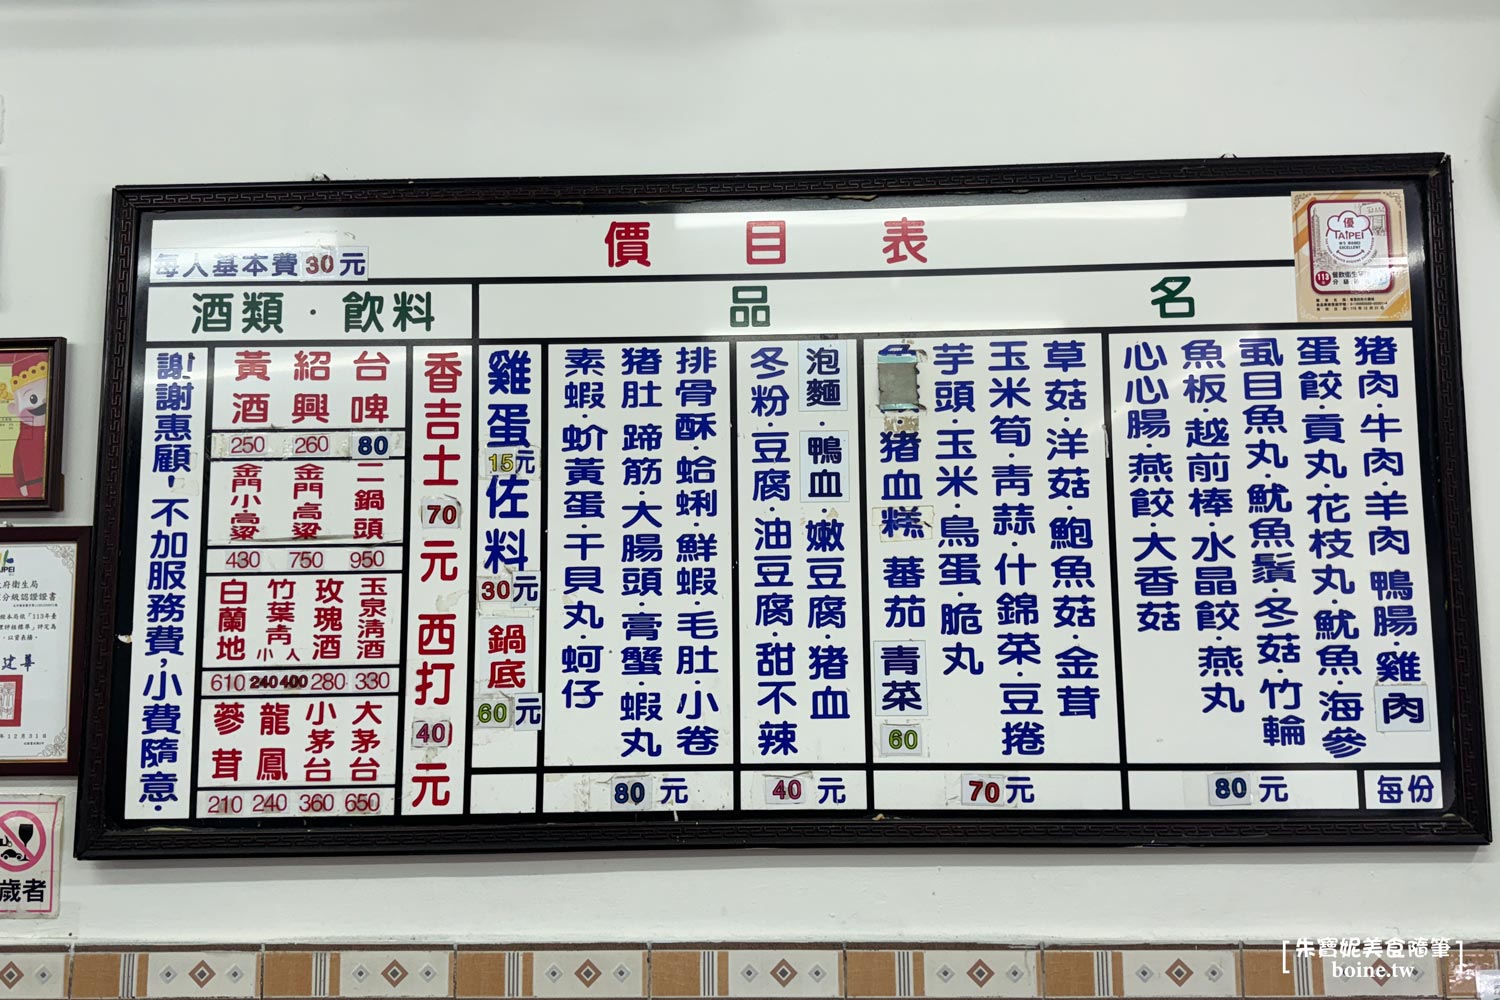 價目表
每人基本費30元
優
TAIPEI
113
品名
酒類·飲料
豬肉·牛肉·羊肉 鴨腸·雞肉
蛋餃·貢丸·花枝丸·魷魚·海參
虱目魚丸·魷魚鬚·冬菇·竹輪
魚板·越前棒·水晶餃·燕丸
心心腸·燕餃·大香菇
每份
80元
草菇·洋菇·鮑魚菇·金茸
玉米筍·青蒜·什錦菜·豆捲
芋頭·玉米·鳥蛋·脆丸
豬血糕 蕃茄 青菜
60
70元
泡麵·鴨血·嫩豆腐·豬血
冬粉·豆腐·油豆腐·甜不辣
40元
排骨酥·蛤蜊·鮮蝦·毛肚·小卷
豬肚 蹄筋·大腸頭·膏蟹·蝦丸
素蝦·蚧黃蛋·干貝丸·蚵仔
80元
雞蛋15元佐料30元
鍋底60元
香吉士70元 西打40元
台啤
80
紹興
260
黃酒
250
二鍋頭
950
金門高粱
750
金門小高粱
430
玉泉清酒
330
玫瑰酒
280
竹葉青小人
240 400
白蘭地
610
大茅台
650
小茅台
360
龍鳳
240
蔘茸
210
謝謝惠顧，不加服務費，小費隨意．
府衛生局
分級認證證書
建華
年12月31日
歲者
朱寶妮美食隨筆
boine.tw